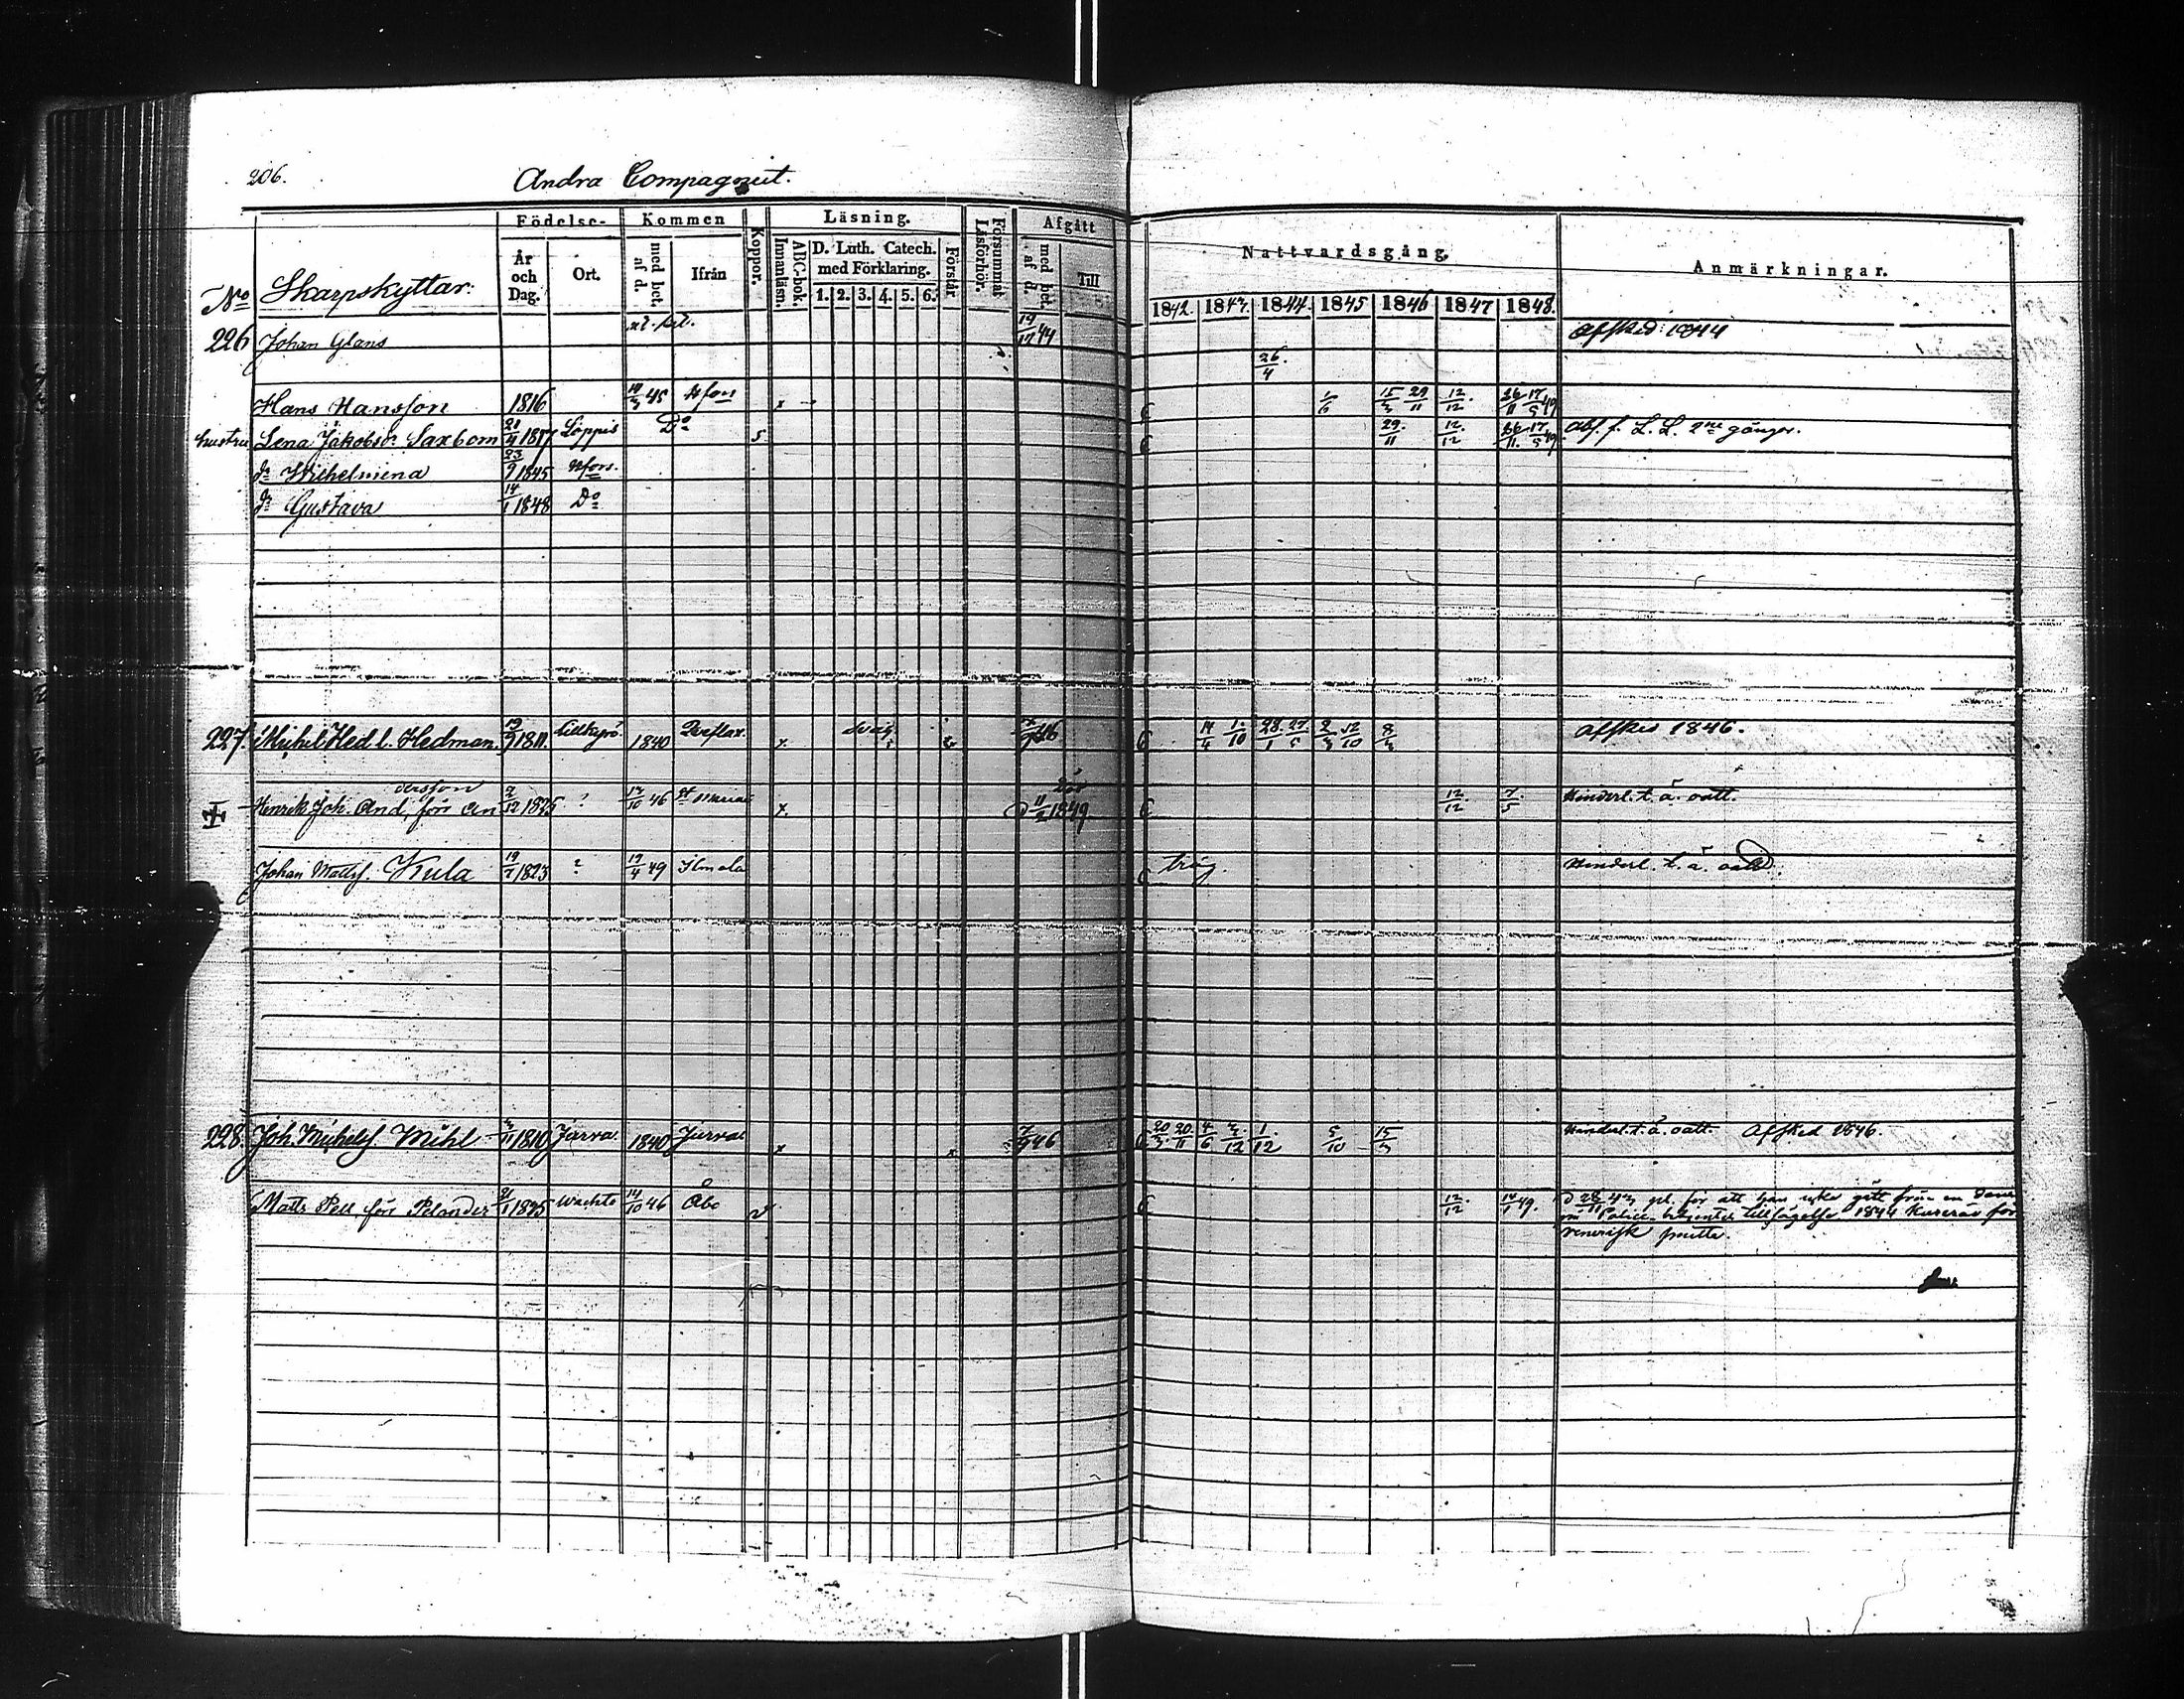 206. Andra Compagniet.
Födelse- Kommen Koppor. Läsning. Försummat Läsförhör. Afgått Nattvardsgång. Anmärkningar.
No Skarpskyttar. År och Dag. Ort. med bet. af d. Ifrån ABC-bok. Innanläsn. D. Luth. Catech. med Förklaring. Förstår med bet. af d. Till
1. 2. 3. 4. 5. 6. 1842. 1843. 1844. 1845 1846 1847 1848.
226 Johan Glans 19/17 44 Afsked 1844
26/4
Hans Hansson 1816 10/3 45 Hfors x 1/6 15/3 29/11 12/12. 26/11 17/5 49
hustru Lena Jakobsdr Saxbom 21/4 1817 Loppis Do 5 29/11 12/12 26/11 17/5 49 Abs. f. L. L. 2ne gånger.
dr Wilhelmina 23/9 1845 Hfors.
dr Gustava 14/1 1848 Do
227. Michel Hed l. Hedman. 19/9 1811. Lillkyrö 1840 Perflax. x. svag 46 14/4 1/10 28/1 27/5 2/3 12/10 8/3 Afsked 1846.
Henrik Joh. And. förr Andersson 2/12 1825 ? 13/10 46 St Marie x. död 11/2 1849 12/12 7/5 Hinderl. t. ä. oatt.
Johan Matts. Kula 19/7 1823 ? 19/4 49 Ilmola trög. Hinderl. t. ä. oatt.
228. Joh. Michelss. Mihl 3/11 1810 Jurva 1840 Jurva x x 7/9 46 20/3 20/11 4/6 3/12 1/12 5/10 15/3 Hinderl. t. ä. oatt. Afsked 1846.
Matts Pell, förr Pelander 21/1 1825 Wichtis 14/10 46 Åbo v 12/12 14/1 49. d 28/11 43 pl. för att han icke gått från en
Police betjents tillsägelse 1844 Kurerad för
venerisk smitta.